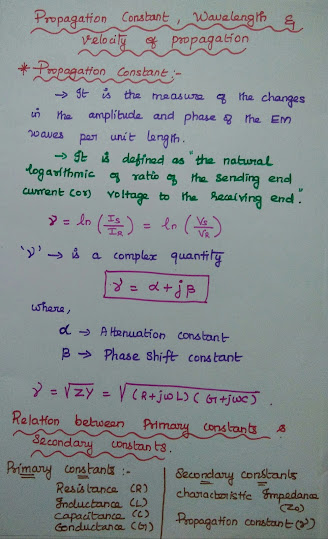 Propagation Constant, Wavelength &
Velocity of propagation
* Propagation Constant :-
→ It is the measure of the changes
in the amplitude and phase of the EM
waves per unit length.
→ It is defined as "the natural
logarithmic of ratio of the sending end
current (or) voltage to the Receiving end".
γ = ln (I_S/I_R) = ln (V_S/V_R)
'γ' → is a complex quantity
γ = α + jβ
where,
α → Attenuation constant
β → Phase Shift constant
γ = √ZY = √(R+jωL)(G+jωC).
Relation between Primary constants &
Secondary constants.
Primary constants :-
Resistance (R)
Inductance (L)
Capacitance (C)
Conductance (G)
Secondary constants
characteristic Impedance
(Z₀)
Propagation constant (γ)